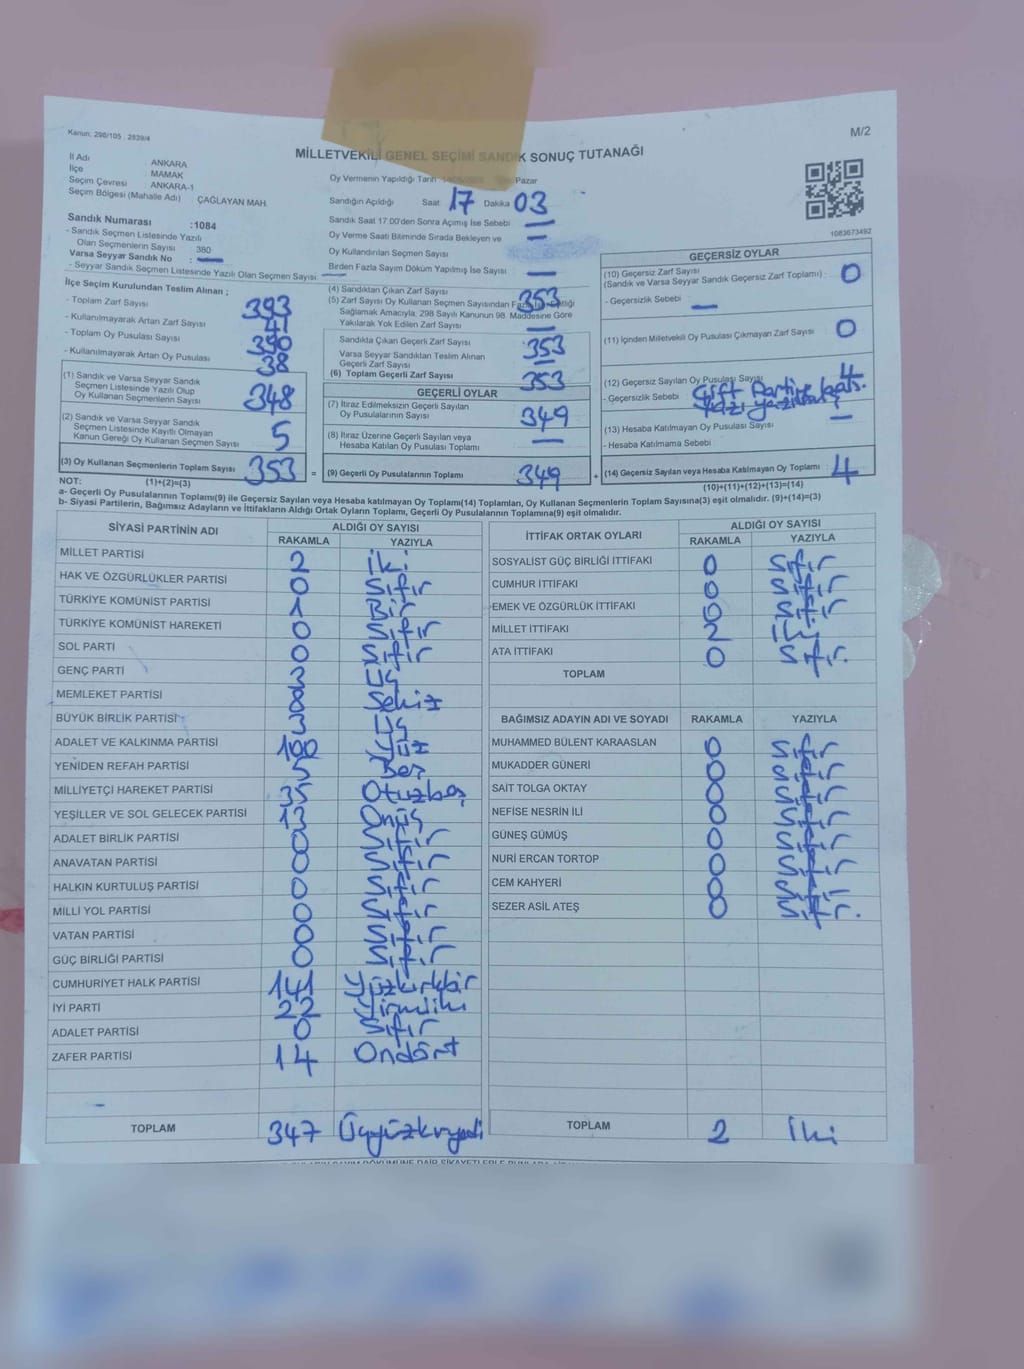 Kanun: 298/105 : 2839/4
M/2
MİLLETVEKİLİ GENEL SEÇİMİ SANDIK SONUÇ TUTANAĞI
İl Adı : ANKARA
İlçe : MAMAK
Seçim Çevresi : ANKARA-1
Seçim Bölgesi (Mahalle Adı) : ÇAĞLAYAN MAH.
Sandık Numarası : 1084
- Sandık Seçmen Listesinde Yazılı
Olan Seçmenlerin Sayısı : 380
Varsa Seyyar Sandık No : —
- Seyyar Sandık Seçmen Listesinde Yazılı Olan Seçmen Sayısı: —
Oy Vermenin Yapıldığı Tarih Pazar
Sandığın Açıldığı Saat 17 Dakika 03
Sandık Saat 17:00'den Sonra Açımış İse Sebebi —
Oy Verme Saati Bitiminde Sırada Bekleyen ve —
Oy Kullandırılan Seçmen Sayısı
Birden Fazla Sayım Döküm Yapılmış İse Sayısı —
1083673492
İlçe Seçim Kurulundan Teslim Alınan ;
- Toplam Zarf Sayısı 393
- Kullanılmayarak Artan Zarf Sayısı 41
- Toplam Oy Pusulası Sayısı 390
- Kullanılmayarak Artan Oy Pusulası 38
(1) Sandık ve Varsa Seyyar Sandık
Seçmen Listesinde Yazılı Olup
Oy Kullanan Seçmenlerin Sayısı 348
(2) Sandık ve Varsa Seyyar Sandık
Seçmen Listesinde Kayıtlı Olmayan
Kanun Gereği Oy Kullanan Seçmen Sayısı 5
(3) Oy Kullanan Seçmenlerin Toplam Sayısı 353 =
(1)+(2)=(3)
(4) Sandıktan Çıkan Zarf Sayısı 353
(5) Zarf Sayısı Oy Kullanan Seçmen Sayısından Fazla İse Eşitliği
Sağlamak Amacıyla, 298 Sayılı Kanunun 98. Maddesine Göre
Yakılarak Yok Edilen Zarf Sayısı —
Sandıkta Çıkan Geçerli Zarf Sayısı 353
Varsa Seyyar Sandıktan Teslim Alınan
Geçerli Zarf Sayısı —
(6) Toplam Geçerli Zarf Sayısı 353
GEÇERLİ OYLAR
(7) İtiraz Edilmeksizin Geçerli Sayılan
Oy Pusulalarının Sayısı 349
(8) İtiraz Üzerine Geçerli Sayılan veya
Hesaba Katılan Oy Pusulası Toplamı —
(9) Geçerli Oy Pusulalarının Toplamı 349 +
GEÇERSİZ OYLAR
(10) Geçersiz Zarf Sayısı
(Sandık ve Varsa Seyyar Sandık Geçersiz Zarf Toplamı) : 0
- Geçersizlik Sebebi —
(11) İçinden Milletvekili Oy Pusulası Çıkmayan Zarf Sayısı 0
(12) Geçersiz Sayılan Oy Pusulası Sayısı 4
- Geçersizlik Sebebi Çift Partiye
(13) Hesaba Katılmayan Oy Pusulası Sayısı —
- Hesaba Katılmama Sebebi
(14) Geçersiz Sayılan veya Hesaba Katılmayan Oy Toplamı : 4
(10)+(11)+(12)+(13)=(14)
NOT:
a- Geçerli Oy Pusulalarının Toplamı(9) ile Geçersiz Sayılan veya Hesaba katılmayan Oy Toplam(14) Toplamları, Oy Kullanan Seçmenlerin Toplam Sayısına(3) eşit olmalıdır. (9)+(14)=(3)
b- Siyasi Partilerin, Bağımsız Adayların ve İttifakların Aldığı Ortak Oyların Toplamı, Geçerli Oy Pusulalarının Toplamına(9) eşit olmalıdır.
SİYASİ PARTİNİN ADI ALDIĞI OY SAYISI
RAKAMLA YAZIYLA
MİLLET PARTİSİ 2 İki
HAK VE ÖZGÜRLÜKLER PARTİSİ 0 Sıfır
TÜRKİYE KOMÜNİST PARTİSİ 1 Bir
TÜRKİYE KOMÜNİST HAREKETİ 0 Sıfır
SOL PARTİ 0 Sıfır
GENÇ PARTİ 3 Üç
MEMLEKET PARTİSİ 8 Sekiz
BÜYÜK BİRLİK PARTİSİ 3 Üç
ADALET VE KALKINMA PARTİSİ 100 Yüz
YENİDEN REFAH PARTİSİ 5 Beş
MİLLİYETÇİ HAREKET PARTİSİ 35 Otuzbeş
YEŞİLLER VE SOL GELECEK PARTİSİ 13 Onüç
ADALET BİRLİK PARTİSİ 0 Sıfır
ANAVATAN PARTİSİ 0 Sıfır
HALKIN KURTULUŞ PARTİSİ 0 Sıfır
MİLLİ YOL PARTİSİ 0 Sıfır
VATAN PARTİSİ 0 Sıfır
GÜÇ BİRLİĞİ PARTİSİ 0 Sıfır
CUMHURİYET HALK PARTİSİ 141 Yüzkırkbir
İYİ PARTİ 22 Yirmiiki
ADALET PARTİSİ 0 Sıfır
ZAFER PARTİSİ 14 Ondört
TOPLAM 347 Üçyüzkırkyedi
İTTİFAK ORTAK OYLARI ALDIĞI OY SAYISI
RAKAMLA YAZIYLA
SOSYALİST GÜÇ BİRLİĞİ İTTİFAKI 0 Sıfır
CUMHUR İTTİFAKI 0 Sıfır
EMEK VE ÖZGÜRLÜK İTTİFAKI 0 Sıfır
MİLLET İTTİFAKI 2 İki
ATA İTTİFAKI 0 Sıfır.
TOPLAM
BAĞIMSIZ ADAYIN ADI VE SOYADI RAKAMLA YAZIYLA
MUHAMMED BÜLENT KARAASLAN 0 Sıfır
MUKADDER GÜNERİ 0 Sıfır
SAİT TOLGA OKTAY 0 Sıfır
NEFİSE NESRİN İLİ 0 Sıfır
GÜNEŞ GÜMÜŞ 0 Sıfır
NURİ ERCAN TORTOP 0 Sıfır
CEM KAHYERİ 0 Sıfır
SEZER ASİL ATEŞ 0 Sıfır.
TOPLAM 2 İki